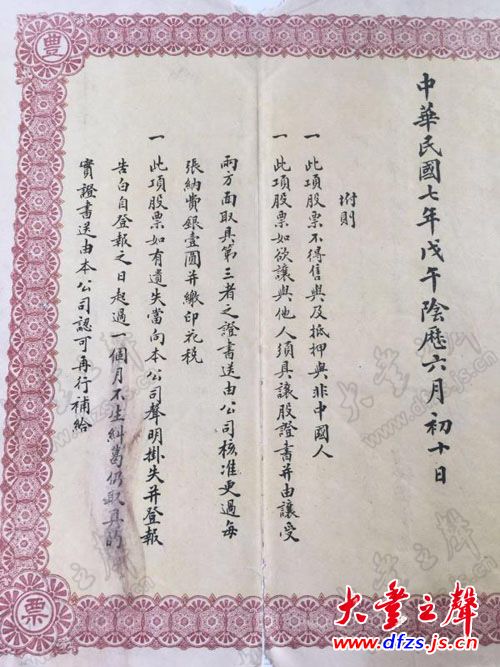 豐
中華民國七年戊午陰歷六月初十日
坿則
一 此項股票不得售與及抵押與非中國人
一 此項股票如欲讓與他人須具讓股證書并由讓受
兩方面取具第三者之證書送由公司核准更過每
張納費銀壹圓并繳印花税
一 此項股票如有遺失當向本公司聲明掛失并登報
告白自登報之日起過一個月不生糾葛仍取具的
實證書送由本公司認可再行補給
票
大豐之聲
www.dfzs.js.cn
大豐之聲
www.dfzs.js.cn
大豐之聲
dfzs.js.cn